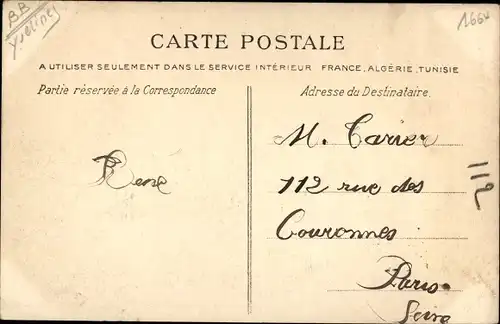 BB
Yvelines
1664
CARTE POSTALE
A UTILISER SEULEMENT DANS LE SERVICE INTÉRIEUR FRANCE, ALGÉRIE, TUNISIE
Partie réservée à la Correspondance
Adresse du Destinataire.
René
M. Carier
112 rue des
Couronnes
Paris
Seine
112